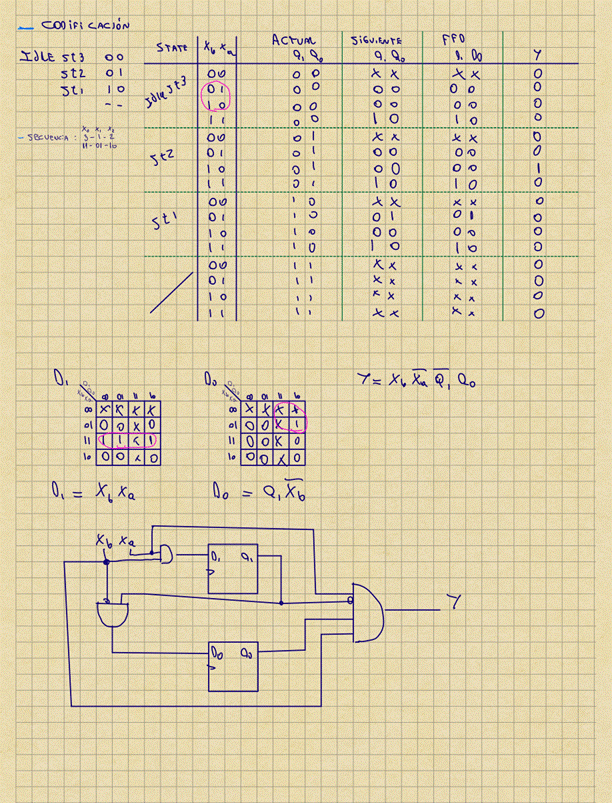 CODIFICACIÓN
IDLE St3 00
St2 01
St1 10
--
- SECUENCIA: X₀ X₁ X₂
3-1-2
11-01-10
STATE Xb Xa ACTUAL Q₁ Q₀ SIGUIENTE Q₁ Q₀ FFD D₁ D₀ Y
Idle St3
00 00 XX XX 0
01 00 00 00 0
10 00 00 00 0
11 00 10 10 0
St2
00 01 XX XX 0
01 01 00 00 0
10 01 00 00 1
11 01 10 10 0
St1
00 10 XX XX 0
01 10 01 01 0
10 10 00 00 0
11 10 10 10 0
00 11 XX XX 0
01 11 XX XX 0
10 11 XX XX 0
11 11 XX XX 0
D₁
00 01 11 10
00 X X X X
01 0 0 X 0
11 1 1 X 1
10 0 0 X 0
D₀
00 01 11 10
00 X X X X
01 0 0 X 1
11 0 0 X 0
10 0 0 X 0
Y = Xb X̅a̅ Q̅₁̅ Q₀
D₁ = Xb Xa
D₀ = Q₁ X̅b̅
Xb Xa
D₁ Q₁
Y
D₀ Q₀